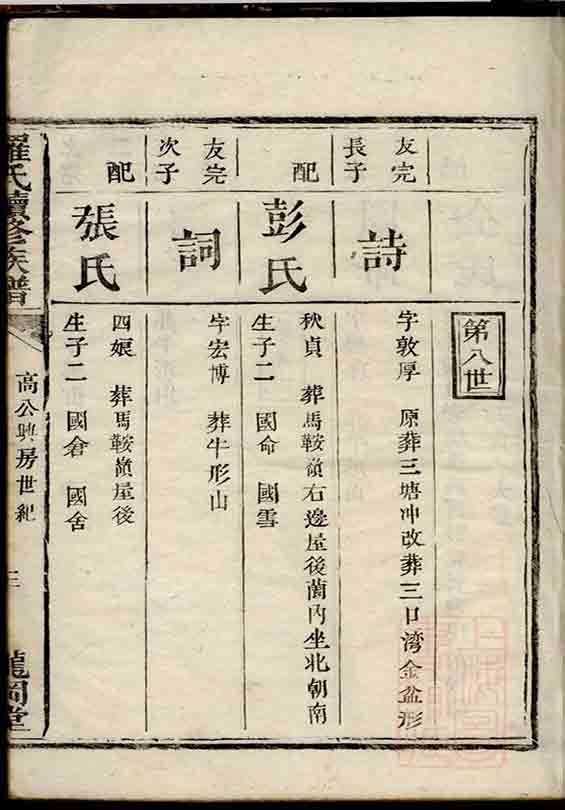 第八世
友完
長子
詩
字敦厚 原葬三塘冲改葬三口湾金盆形
配
彭氏
秋貞 葬馬鞍嶺右邊屋後蘭內坐北朝南
生子二 國命 國雪
友完
次子
詞
字宏博 葬牛形山
配
張氏
四娘 葬馬鞍嶺屋後
生子二 國倉 國舍
羅氏續修族譜
高公興房世紀
三
龍岡堂